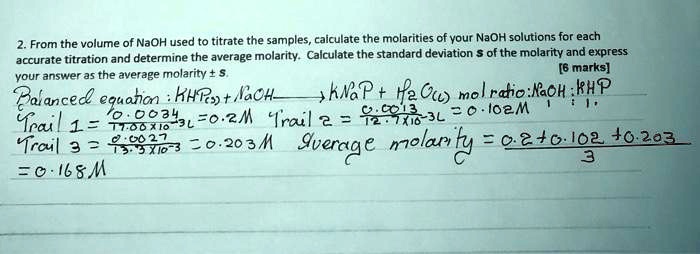 2. From the volume of NaOH used to titrate the samples, calculate the molarities of your NaOH solutions for each
accurate titration and determine the average molarity. Calculate the standard deviation s of the molarity and express
your answer as the average molarity ± s. [6 marks]
Balanced equation : KHP(s) + NaOH → KNaP + H2O(l) mol ratio : NaOH : KHP
1 : 1.
Trail 1 = 0.0034 / 17.05x10-3L = 0.2M Trail 2 = 0.0013 / 12.7x10-3L = 0.102M
Trail 3 = 0.0027 / 13.3x10-3 = 0.203M Average molarity = 0.2+0.102+0.203 / 3
= 0.168M